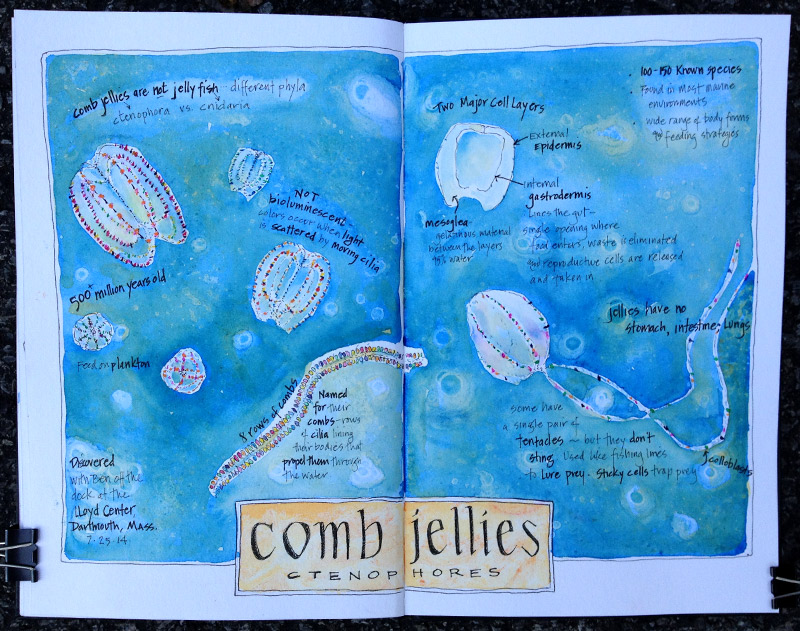 comb jellies are not jelly fish - different phyla
ctenophora vs. cnidaria
NOT
bioluminescent -
colors occur when light
is scattered by moving cilia
500+ million years old
Feed on plankton
8 rows of combs
Named
for their
combs - rows
of cilia lining
their bodies that
propel them through
the water
Discovered
with Ben off the
dock at the
Lloyd Center,
Dartmouth, Mass.
7.25.14.
Two Major Cell Layers
External
Epidermis
Internal
gastrodermis
Lines the gut -
single opening where
food enters, waste is eliminated
reproductive cells are released
and taken in
mesoglea -
gelatinous material
between the layers
95% water
• 100-150 Known species
• Found in most marine
environments
• wide range of body forms
& feeding strategies
jellies have no
stomach, intestine, Lungs
some have
a single pair of
tentacles - but they don't
sting. Used like fishing lines
to Lure prey. Sticky cells trap prey
colloblasts
comb jellies
CTENOPHORES